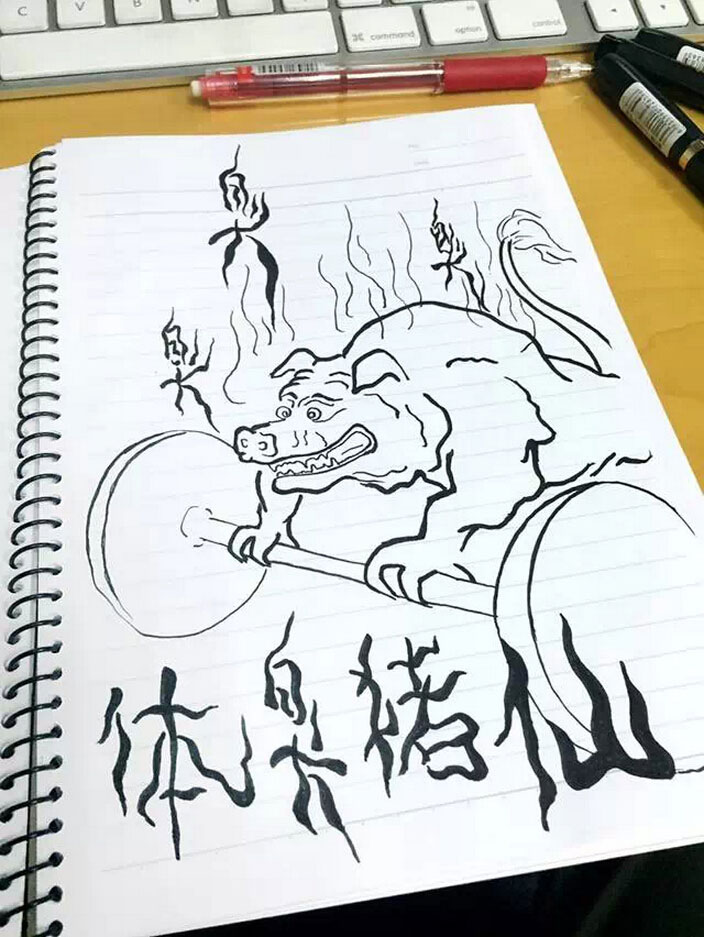 C V B N M
⌘ command option control
臭
臭
臭
体臭猪仙